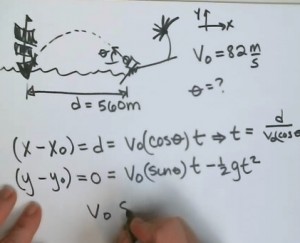 Y
X
V₀ = 82 m/s
θ
θ = ?
d = 560m
(x-x₀) = d = V₀(cosθ)t ⇒ t = d/V₀(cosθ
(y-y₀) = 0 = V₀(sinθ)t - ½gt²
V₀ s